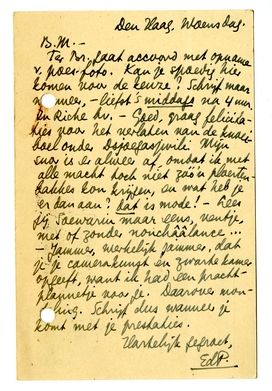 Den Haag, Woensdag.
B.M. —
Ter Br. gaat accoord met opname
v. poes-foto. Kan je spoedig hier
komen voor de keuze? Schrijf maar
wanneer, – liefst 's middags na 4 uur.
En Riche hr. – Goed, graag felicita-
ties voor het verlaten van de
boel onder Mijn
snor is er alweer af, omdat ik met
alle macht toch niet zóó'n
kon krijgen, en wat heb je
er dan aan? dat is mode! – Lees
jij maar eens, ventje,
met of zonder nonchâlance ...
— Jammer, werkelijk jammer, dat
je je camerakunst en zwarte kamer
opgeeft, want ik had een pracht-
plannetje voor je. Daarover mon-
deling. Schrijf dus wanneer je
komt met je prestaties.
Hartelijk gegroet,
EdP.